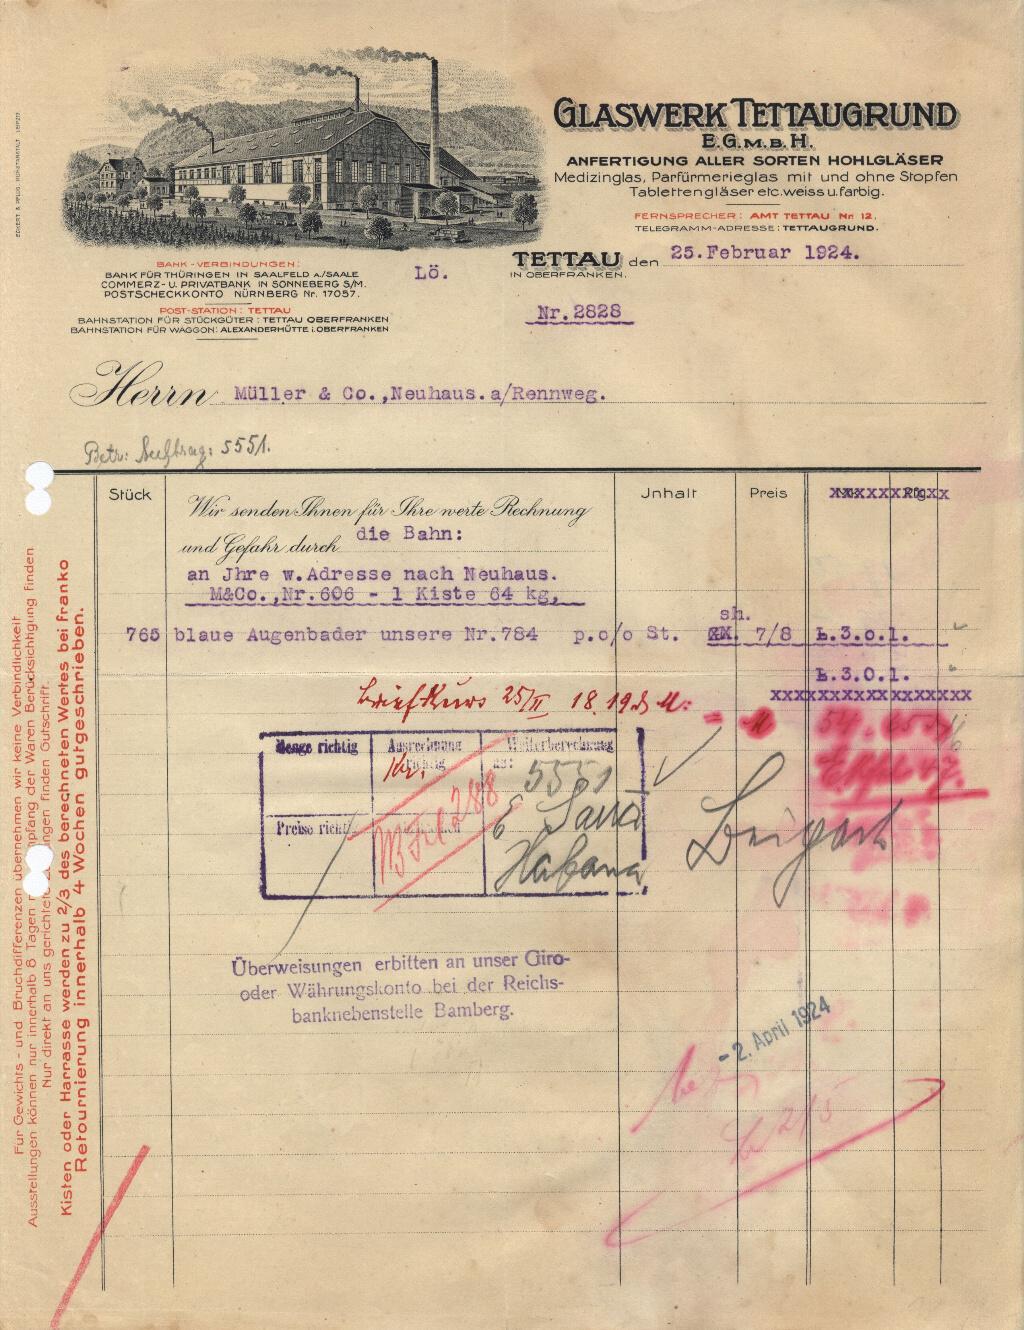 GLASWERK TETTAUGRUND
E.G.M.B.H.
ANFERTIGUNG ALLER SORTEN HOHLGLÄSER
Medizinglas, Parfürmerieglas mit und ohne Stopfen
Tablettengläser etc. weiss u. farbig.
FERNSPRECHER: AMT TETTAU Nr. 12.
TELEGRAMM-ADRESSE: TETTAUGRUND.
BANK-VERBINDUNGEN:
BANK FÜR THÜRINGEN IN SAALFELD A./SAALE
COMMERZ- U. PRIVATBANK IN SONNEBERG S/M.
POSTSCHECKKONTO NÜRNBERG Nr. 17057.
POST-STATION: TETTAU
BAHNSTATION FÜR STÜCKGÜTER: TETTAU OBERFRANKEN
BAHNSTATION FÜR WAGGON: ALEXANDERHÜTTE i. OBERFRANKEN
Lö.
TETTAU den 25.Februar 1924.
IN OBERFRANKEN.
Nr.2828
Herrn Müller & Co.,Neuhaus.a/Rennweg.
Betr: Auftrag: 5551.
Stück
Jnhalt
Preis
Wir senden Ihnen für Ihre werte Rechnung
und Gefahr durch die Bahn:
an Jhre w.Adresse nach Neuhaus.
M&Co.,Nr.606 - 1 Kiste 64 kg,
sh.
765 blaue Augenbader unsere Nr.784 p.o/o St. 7/8 L.3.0.1.
L.3.0.1.
xxxxxxxxxxxxxxxxxx
Briefkurs 25/II 18.19
Menge richtig
Ausrechnung richtig
Weiterberechnung an:
5551
Preise richt
Habana
Überweisungen erbitten an unser Giro-
oder Währungskonto bei der Reichs-
banknebenstelle Bamberg.
-2. April 1924
Für Gewichts- und Bruchdifferenzen übernehmen wir keine Verbindlichkeit
Ausstellungen können nur innerhalb 8 Tagen Empfang der Waren Berücksichtigung finden
Nur direkt an uns gerichtete finden Gutschrift.
Kisten oder Harrasse werden zu 2/3 des berechneten Wertes bei franko
Retournierung innerhalb 4 Wochen gutgeschrieben.